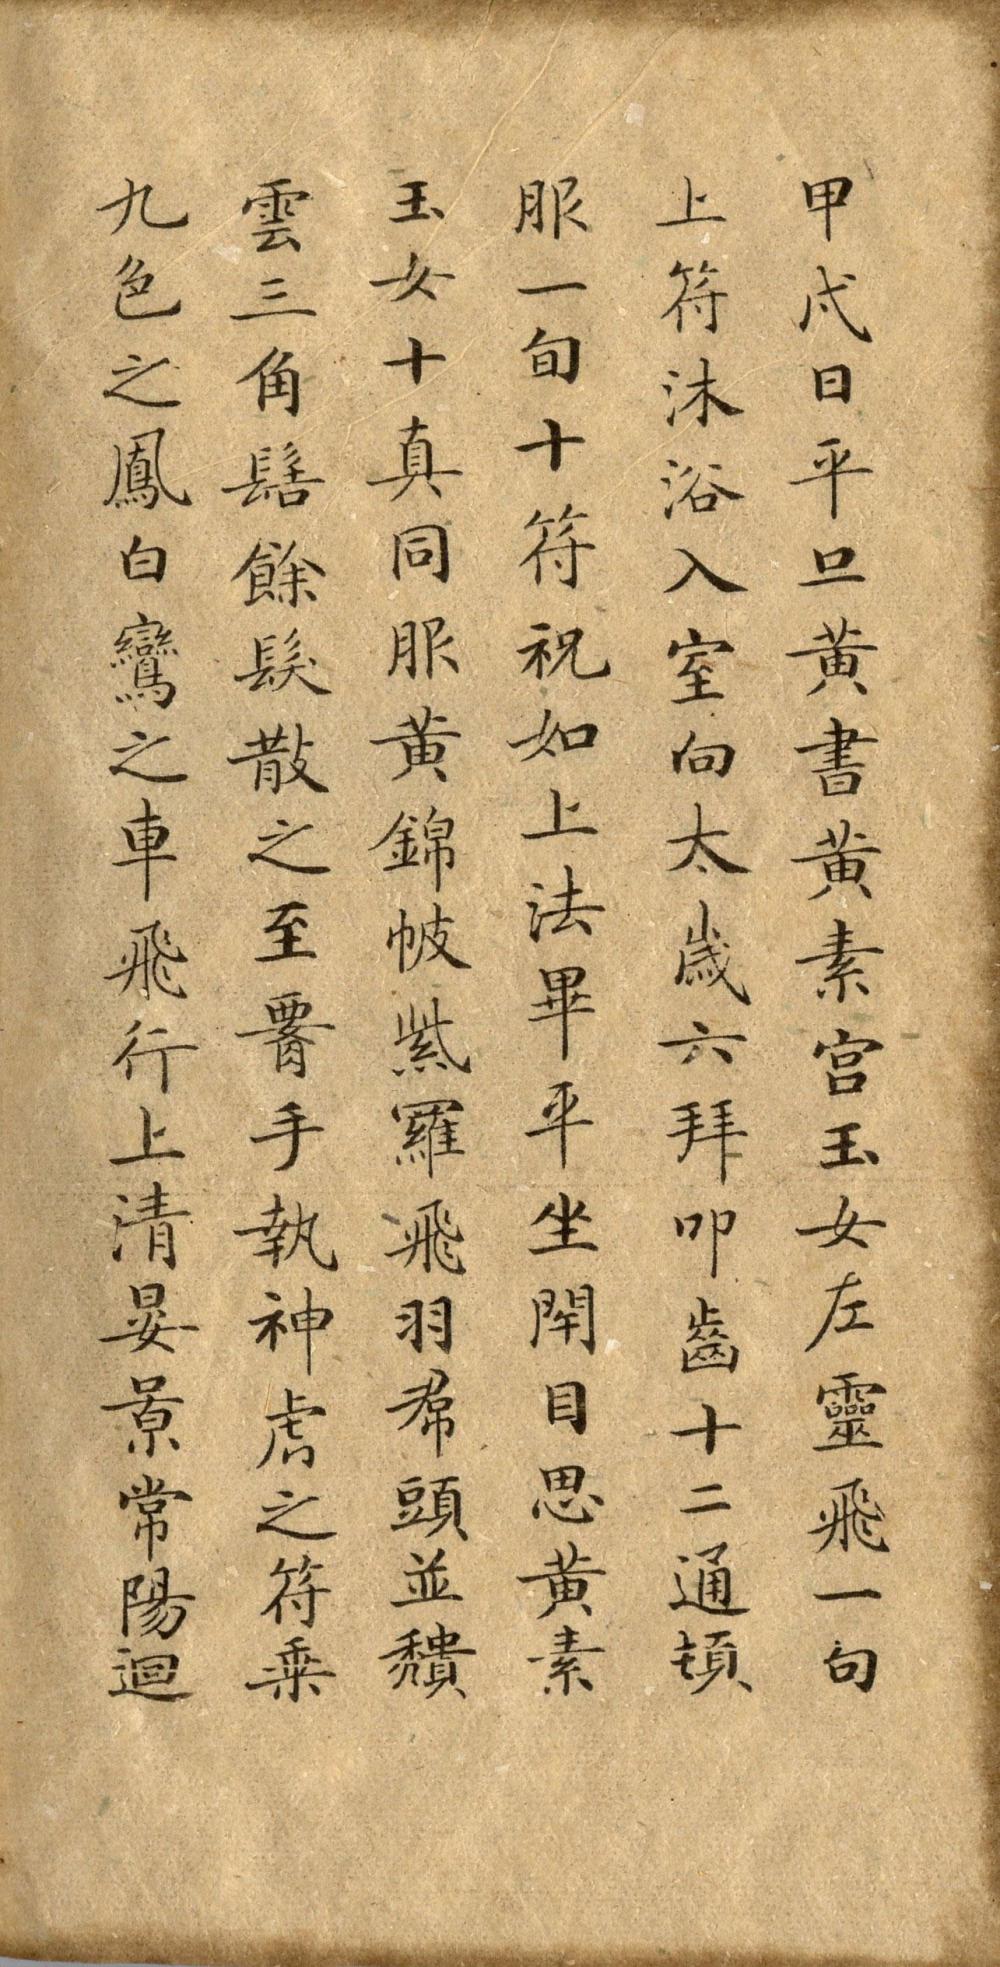 甲戌日平旦黄書黄素宫玉女左靈飛一旬
上符沐浴入室向太歲六拜叩齒十二通頓
服一旬十符祝如上法畢平坐閇目思黄素
玉女十真同服黄錦帔紫羅飛羽帬頭並穨
雲三角髻餘髮散之至署手執神虎之符乗
九色之鳳白鸞之車飛行上清晏景常陽迴